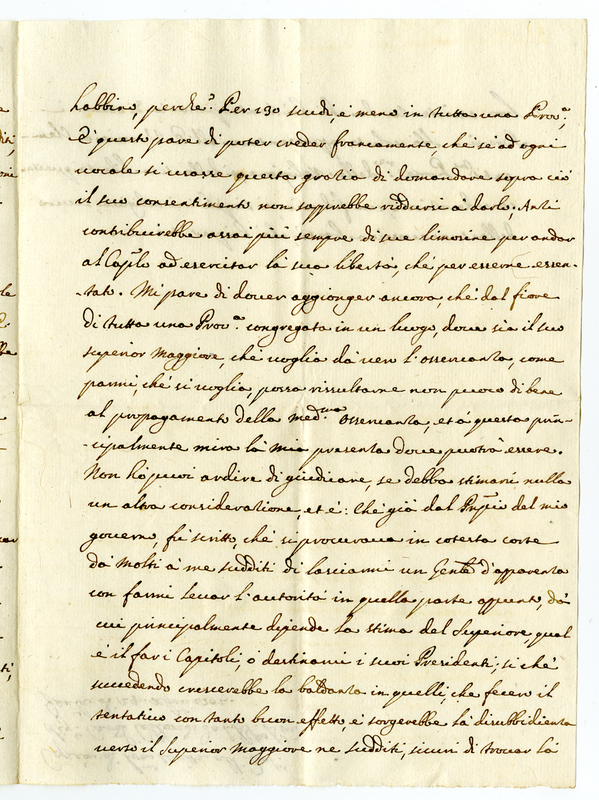 habbino, perche? Per 130 scudi, è meno in tutta una Prov.ª,
E questo pare di poter creder francamente che se ad ogni
vocale si usasse questa gratia di domandare sopra ciò
il suo consentimento non sapprebbe riddursi à darlo; Anzi
contribuirebbe assai più sempre di sue limosine per andar
al Cap.lo ad esercitar la sua libertà, che per esserne essen-
-tato. Mi pare di dover aggionger ancora, che dal fiore
di tutta una Prov.ª congregata in un luogo, dove sia il suo
superior Maggiore, che voglia dà ver l'osservanza, come
parmi, che si voglia, possa rissultarne non puoco di bene
al propagamento della med.ma osservanza, et à questo prin-
-cipalmente mira là mia presenza dove puotrà essere.
Non hò puoi ardire di giudicare, se debba stimarsi nulla
un altra consideratione, et è: Che già dal Prin.cio del mio
governo, fù scritto, che si procurava in cotesta corte
dà molti à me sudditi di lasciarmi un Gen.le d'apparenza
con farmi levar l'autorità in quella parte appunto, dà
cui principalmente dipende là stima del Superiore, qual
è il far i Capitoli, ò destinarvi i suoi Presidenti; si che
succedendo crescerebbe la baldanza in quelli, che fecero il
tentativo con tanto buon effetto, è sorgerebbe là disubbidienza
verso il Superior Maggiore ne sudditi, sicuri di trovar là